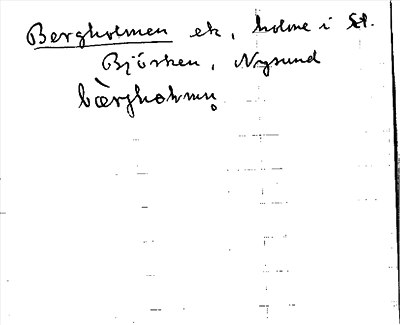 Bergholmen ek, holme i St.
Björken, Nysund
bàrgholmn̥